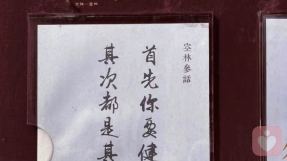 空林話
首先你要健
其次都是其